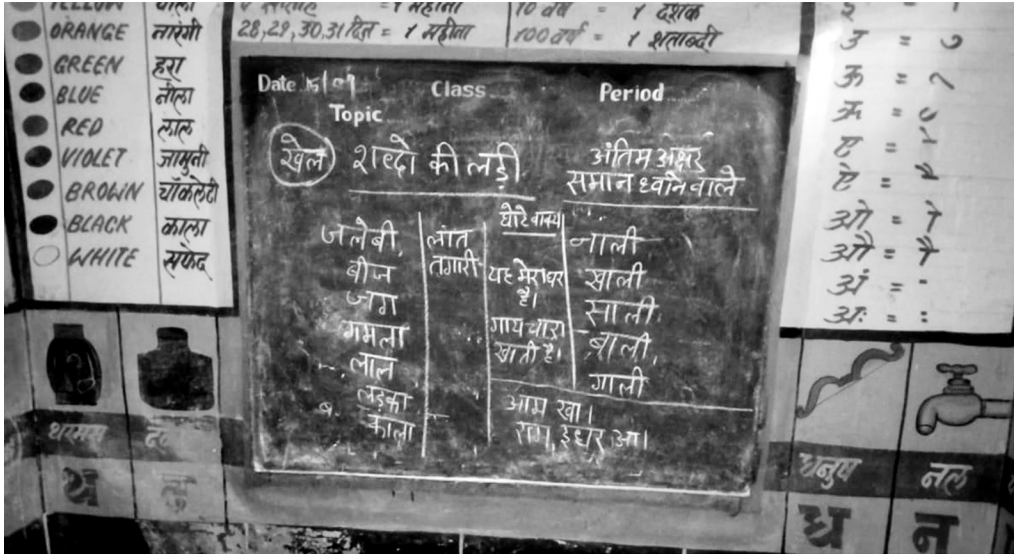 YELLOW पीला
ORANGE नारंगी
GREEN हरा
BLUE नीला
RED लाल
VIOLET जामुनी
BROWN चॉकलेटी
BLACK काला
WHITE सफेद
= 1 महीना
28,29,30,31 दिन = 1 महीना
10 वर्ष = 1 दशक
100 वर्ष = 1 शताब्दी
Date 15/07 Class Period
Topic
खेल शब्दो की लड़ी
अंतिम अक्षर
समान ध्वनि वाले
जलेबी,
बीज
जग
गमला
लाल
लड़का
काला
लात
तगारी
छोटे वाक्य
यह मेरा घर
है।
गाय चारा
खाती है।
नाली
खाली
साली
बाली,
गाली
आम खा।
राम, इधर आ।
इ =
उ = ु
ऊ = ू
ऋ = ृ
ए = े
ऐ = ै
ओ = ो
औ = ौ
अं = ं
अः = ः
थरमस
थ
द
धनुष
ध
नल
न